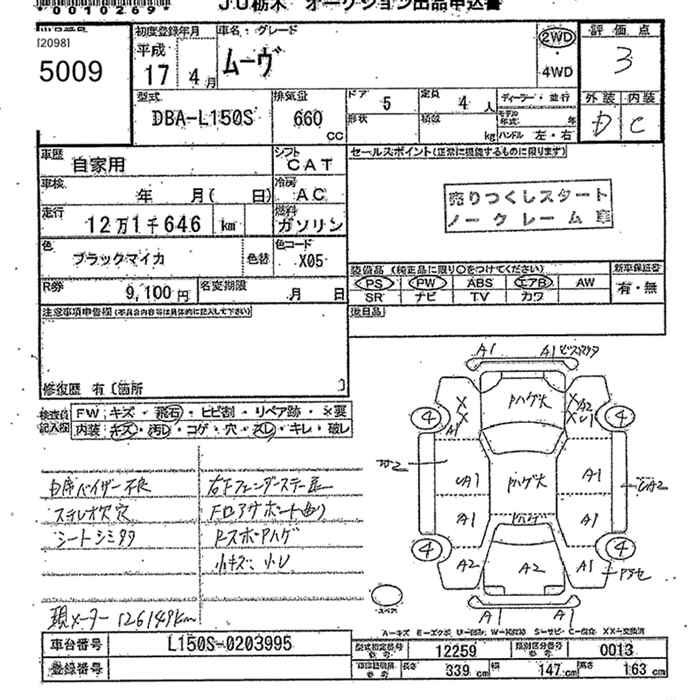 00102697
JU栃木 オークション出品申込書
[20981
5009
初度登録年月
平成
17 4月
車名・グレード
ムーヴ
2WD
4WD
評価点
3
外装 内装
D C
型式
DBA-L150S
排気量
660
CC
ドア
5
定員
4人
形状
積数
kg
ディーラー・並行
モデル年式 年
ハンドル 左・右
車歴
自家用
シフト
CAT
セールスポイント(正常に機能するものに限ります)
売りつくしスタート
ノークレーム車
車検
年 月( 日)
冷房
AC
走行
12万1千646 km
燃料
ガソリン
色
ブラックマイカ
色替
色コード
X05
R券
9,100円
名変期限
月 日
装備品(純正品に限り○をつけてください)
PS PW ABS エアB AW
SR ナビ TV カワ
新車保証書
有・無
後日品
注意事項申告欄(不具合内容等は具体的に記入して下さい)
修復歴 有〔箇所 〕
検査員記入欄
FW キズ・飛石・ヒビ割・リペア跡・×要
内装 キズ・汚レ・コゲ・穴・スレ・キレ・破レ
内席バイザー不良
ステレオ欠穴
シートシミタタ
右Fフェンダーステー
Rスポハゲ
小キズ、小レ
現メーター126149km
A1 A1
Pハゲ大
X X A1
X A2
X U1
4 4
UA1 Pハゲ大 A1
UA2
A1 Pハゲ A1
4 4
A2 A2 A1
A1 A1
スペア
A-キズ E-エクボ U-凹み W-補修跡 S-サビ C-腐食 XX-交換済
車台番号
L150S-0203995
登録番号
型式指定番号
参考
12259
類別区分番号
参考
0013
長さ
339 cm
幅
147 cm
高さ
163 cm